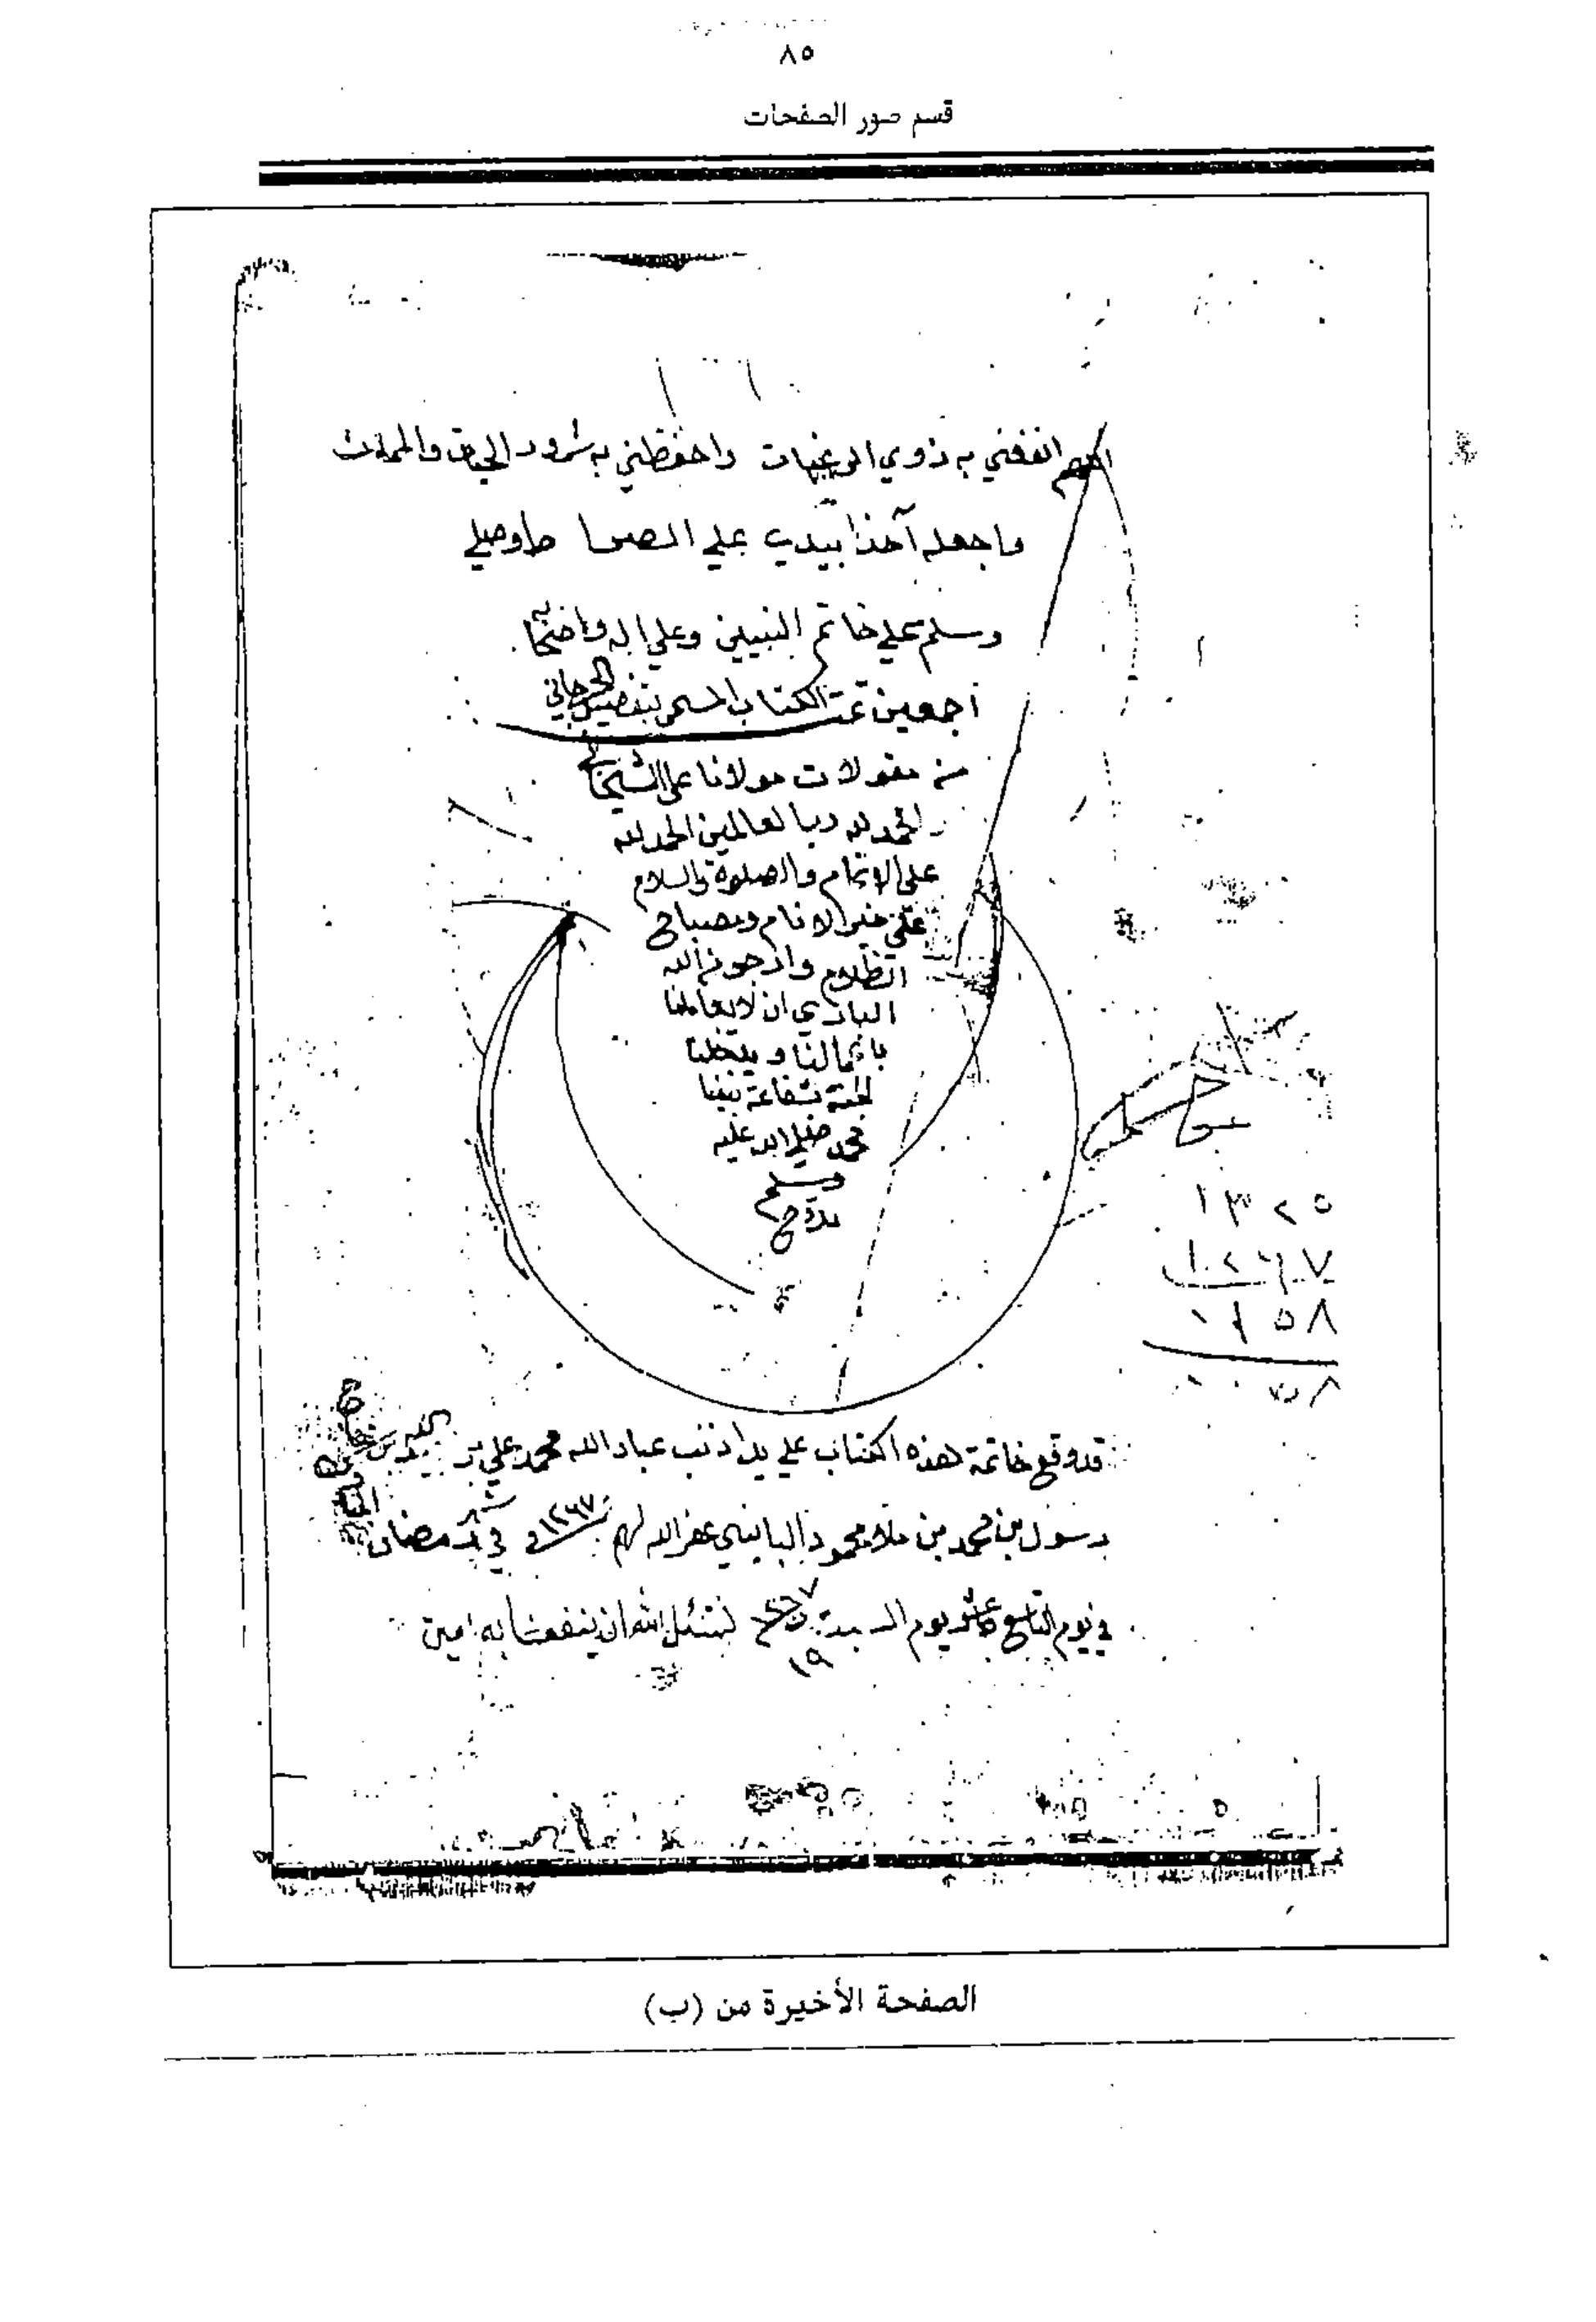 ٨٥
قسم صور الصفحات
اللهم انفعني به ذوي الرغبات واحفظني به شرور الحيوة والممات
واجعله آخذا بيدي علي الصراط وصلي
وسلم علي خاتم النبيين وعلي اله واصحابه
اجمعين تمت الكتاب المسمى بتفصيل الجرجاني
من مقولات مولانا علي
الحمد لله رب العالمين الحمد لله
على الاتمام والصلوة والسلام
علي خير الانام ومصباح
الظلام وارجو من الله
الباري ان لا يعاملنا
باعمالنا ويدخلنا
الجنة بشفاعة نبينا
محمد صلي الله عليه
وسلم
١٣٢٥
١٢٦٧
٥٨
٥٨
قد وقع خاتمة هذه الكتاب علي يد اذنب عباد الله محمد علي بن
رسول بن محمد بن ملا محمود غفر الله لهم ١٢٦٧ في رمضان
في يوم التاسع عشر يوم نسئل الله ان ينفعنا به امين
١٩
الصفحة الأخيرة من (ب)